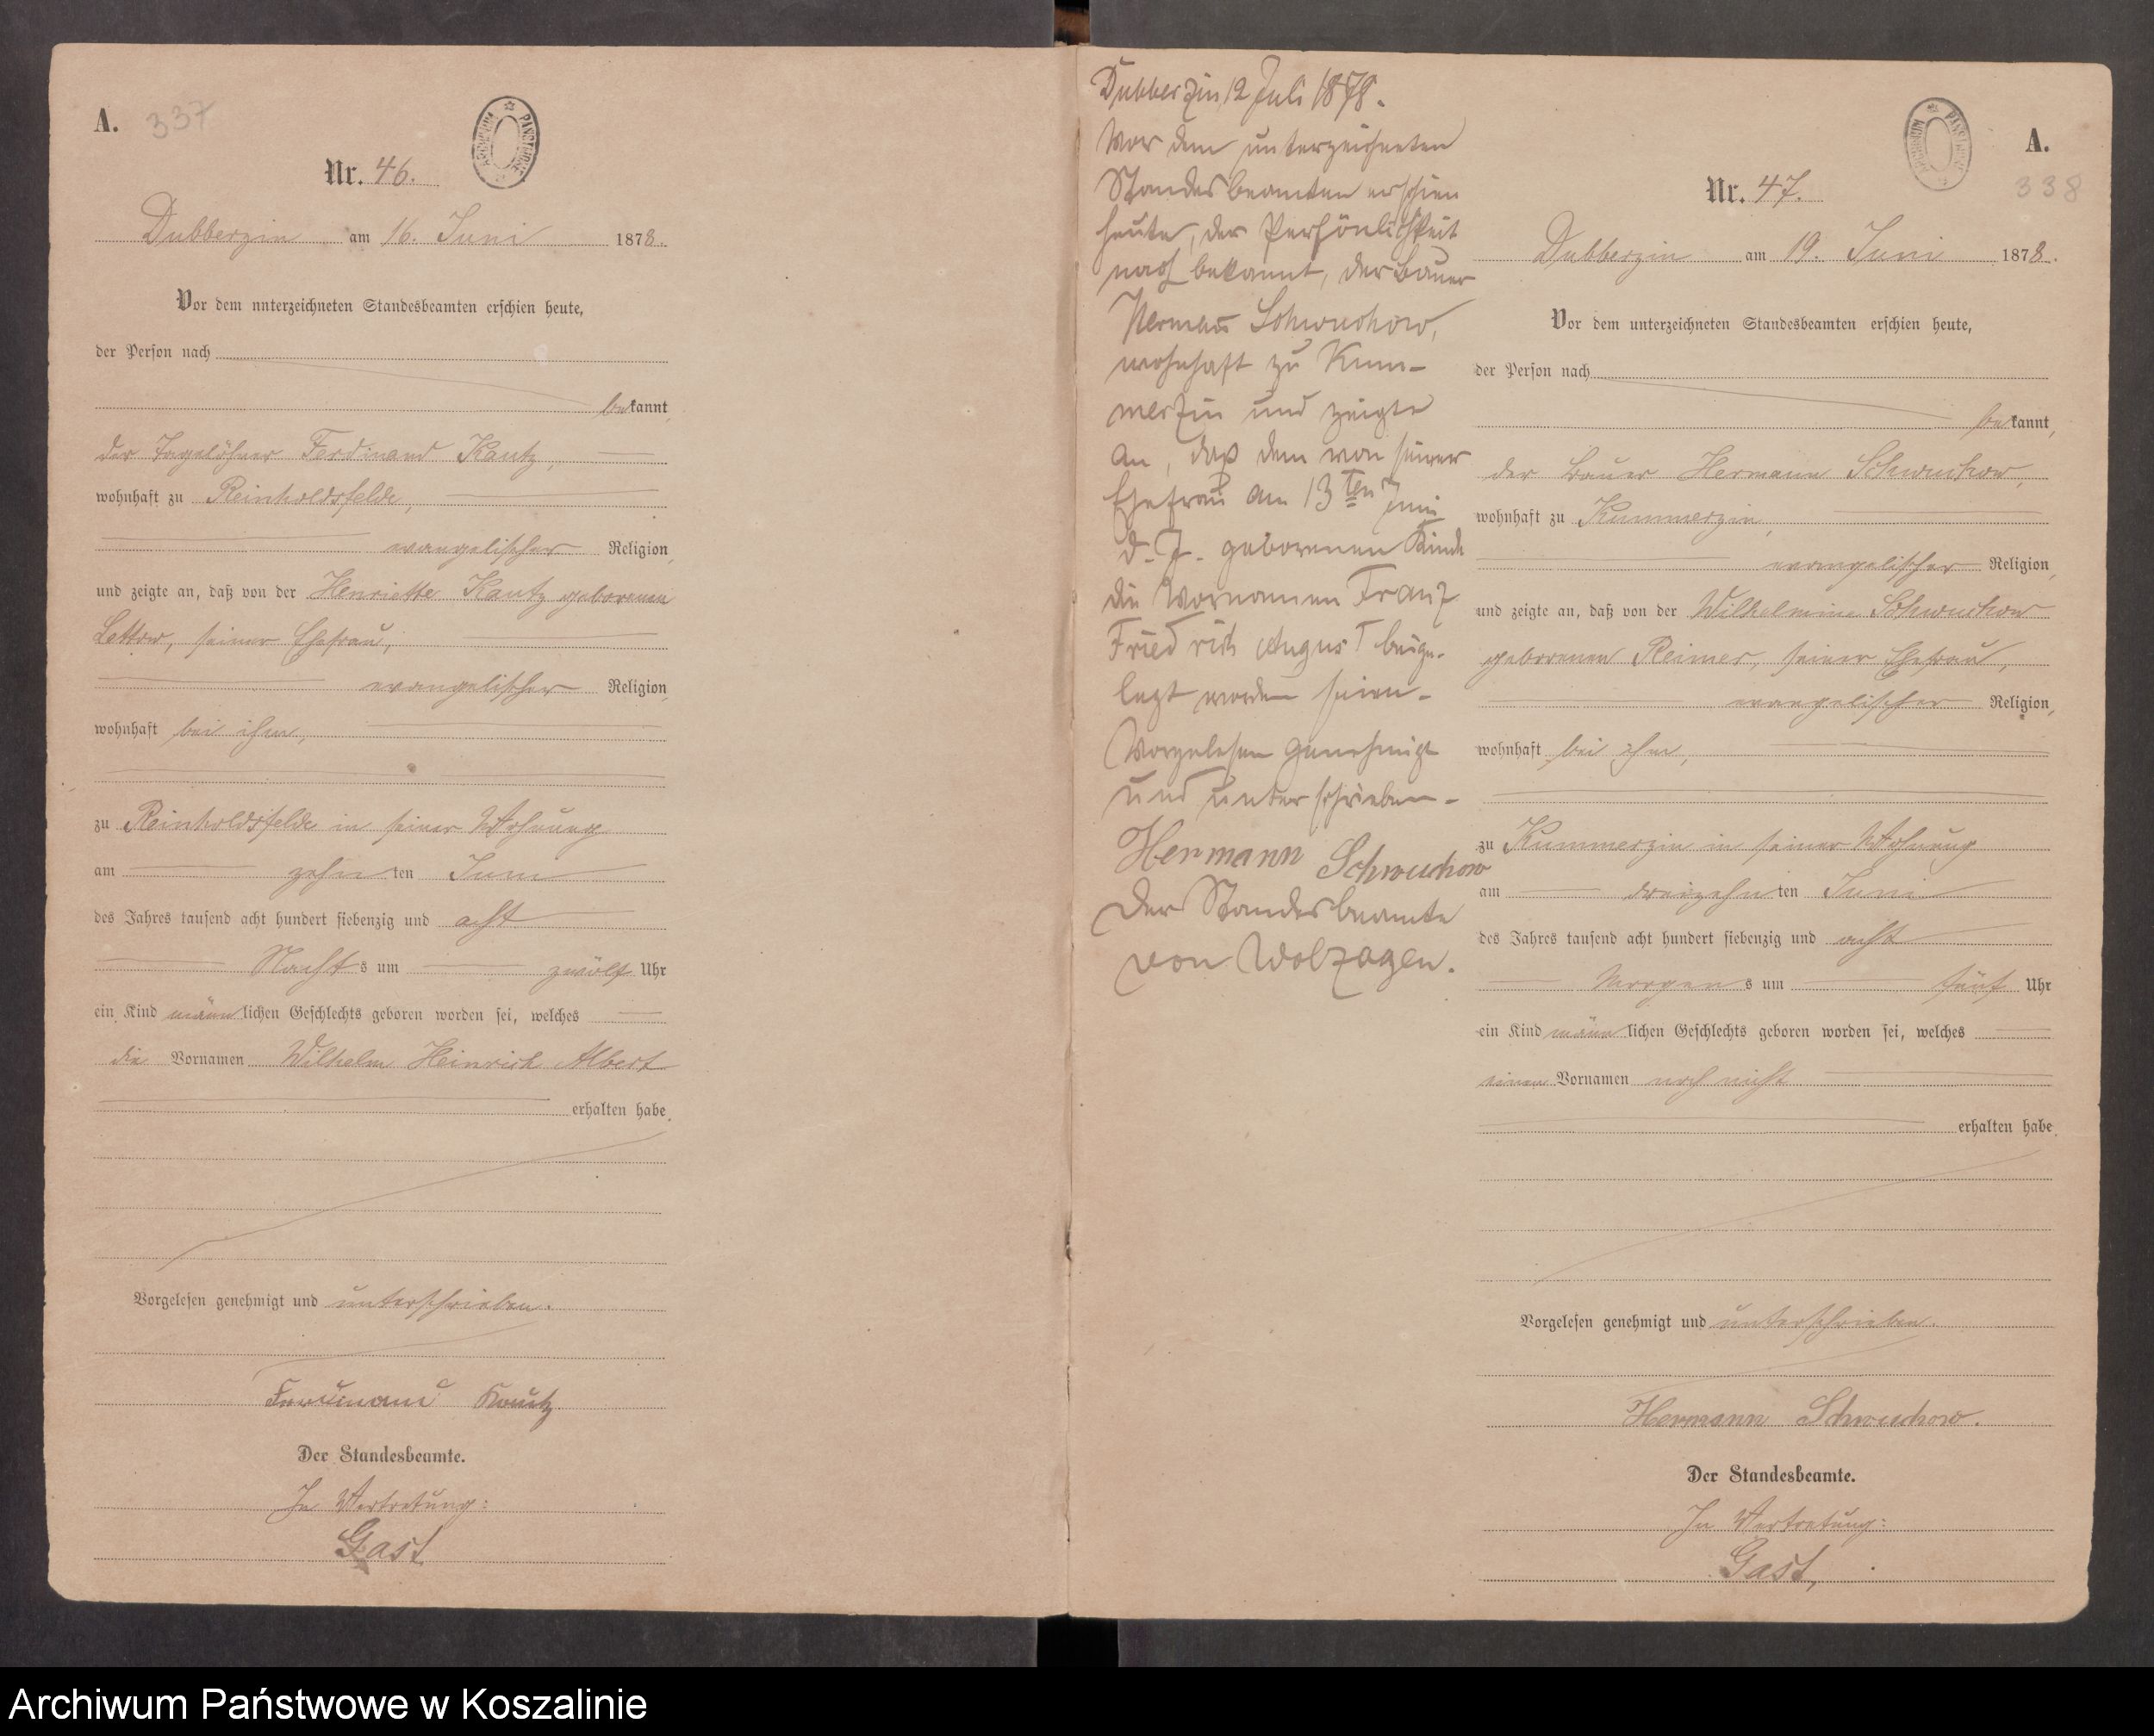 A. 337
ARCHIWUM PAŃSTWOWE
Nr. 46.
Dubberzin am 16. Juni 1878.
Vor dem unterzeichneten Standesbeamten erschien heute,
der Person nach
bekannt
der Tagelöhner Ferdinand Kautz,
wohnhaft zu Reinholdsfelde,
evangelischer Religion,
und zeigte an, daß von der Henriette Kautz geborenen
Lettow, seiner Ehefrau,
evangelischer Religion,
wohnhaft bei ihm,
zu Reinholdsfelde in seiner Wohnung
am zehnten Juni
des Jahres tausend acht hundert siebenzig und acht
Nachts um zwölf Uhr
ein Kind männlichen Geschlechts geboren worden sei, welches
die Vornamen Wilhelm Heinrich Albert
erhalten habe.
Vorgelesen genehmigt und unterschrieben.
Ferdinand Kautz
Der Standesbeamte.
In Vertretung:
Gast
Dubberzin 12 Juli 1878.
Vor dem unterzeichneten
Standesbeamten erschien
heute, der Persönlichkeit
nach bekannt, der Bauer
Herman Schwuchow,
wohnhaft zu Kum-
merzin und zeigte
an, daß dem von seiner
Ehefrau am 13ten Juni
d. J. geborenen Kinde
die Vornamen Franz
Friedrich August beige-
legt worden seien-
Vorgelesen genehmigt
und unterschrieben-
Hermann Schwuchow
Der Standesbeamte
von Wolzogen.
A.
338
ARCHIWUM PAŃSTWOWE
Nr. 47.
Dubberzin am 19. Juni 1878.
Vor dem unterzeichneten Standesbeamten erschien heute,
der Person nach
bekannt,
der Bauer Hermann Schwuchow,
wohnhaft zu Kummerzin,
evangelischer Religion,
und zeigte an, daß von der Wilhelmine Schwuchow
geborenen Reimer, seiner Ehefrau,
evangelischer Religion,
wohnhaft bei ihm,
zu Kummerzin in seiner Wohnung
am dreizehnten Juni
des Jahres tausend acht hundert siebenzig und acht
Morgens um fünf Uhr
ein Kind männlichen Geschlechts geboren worden sei, welches
einen Vornamen noch nicht
erhalten habe.
Vorgelesen genehmigt und unterschrieben.
Hermann Schwuchow.
Der Standesbeamte.
In Vertretung:
Gast,
Archiwum Państwowe w Koszalinie